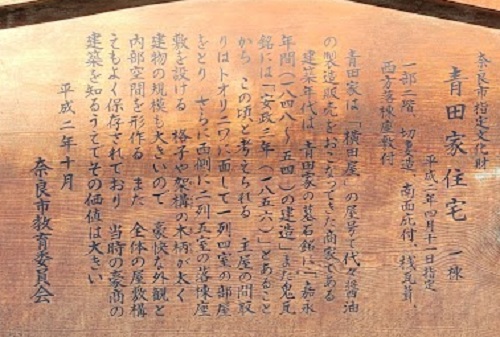 奈良市指定文化財
青田家住宅 一棟
平成二年四月十一日指定
一部二階 切妻造 南面庇付、桟瓦葺、
西方落棟座敷付
青田家は「横田屋」の屋号で代々醤油
の製造販売をおこなってきた商家である
建築年代は 青田家の墓石銘に「嘉永
年間(一八四八〜五四)の建造」また鬼瓦
銘には「安政三年(一八五六)」とあること
から この頃と考えられる 主屋の間取
りはトオリニワに面して一列四室の部屋
をとり さらに西側に二列五室の落棟座
敷を設ける 格子や架構の木柄が太く
建物の規模も大きいので 豪快な外観と
内部空間を形作る また 全体の屋敷構
えもよく保存されており 当時の豪商の
建築を知るうえでその価値は大きい
平成二年十月
奈良市教育委員会